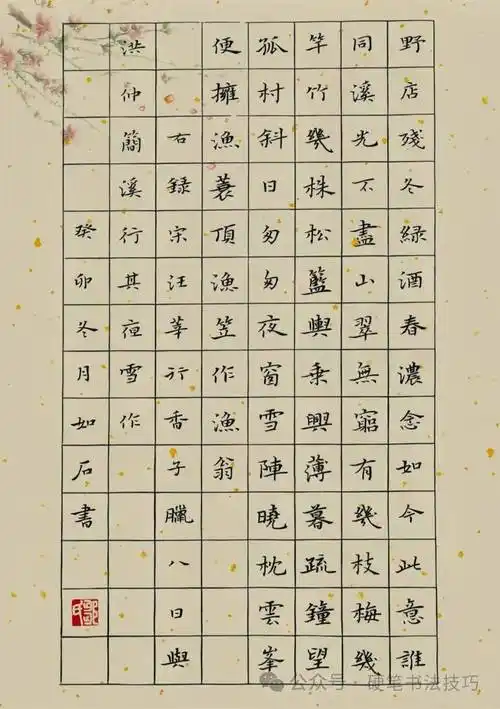 野店殘冬綠酒春濃念如今此意誰
同溪光不盡山翠無窮有幾枝梅幾
竿竹幾株松籃輿乘興薄暮疏鐘望
孤村斜日匆匆夜窗雪陣曉枕雲峯
便擁漁蓑頂漁笠作漁翁
右錄宋汪莘行香子臘八日與
洪仲簡溪行其夜雪作
癸卯冬月如石書
公众号·硬笔书法技巧